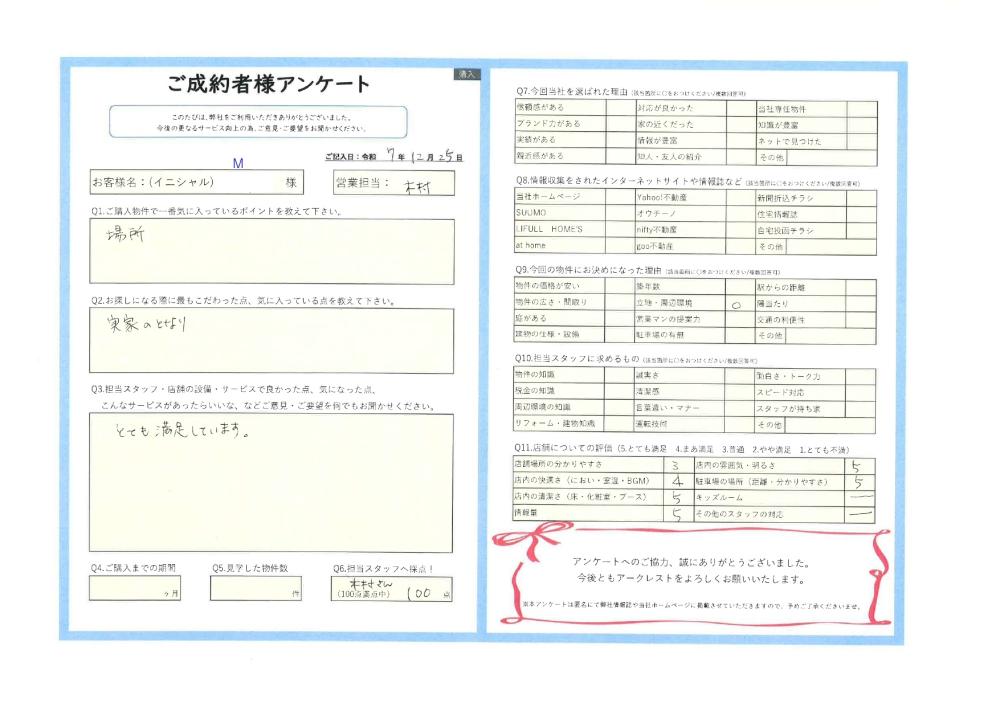 購入
ご成約者様アンケート
このたびは、弊社をご利用いただきありがとうございました。
今後の更なるサービス向上の為、ご意見・ご要望をお聞かせください。
ご記入日：令和 7 年 12 月 25 日
M
お客様名：(イニシャル) 様
営業担当： 木村
Q1.ご購入物件で一番気に入っているポイントを教えて下さい。
場所
Q2.お探しになる際に最もこだわった点、気に入っている点を教えて下さい。
実家のとなり
Q3.担当スタッフ・店舗の設備・サービスで良かった点、気になった点、
こんなサービスがあったらいいな、などご意見・ご要望を何でもお聞かせください。
とても満足しています。
Q4.ご購入までの期間
ヶ月
Q5.見学した物件数
件
Q6.担当スタッフへ採点！
木村さん
(100点満点中) 100 点
Q7.今回当社を選ばれた理由 (該当箇所に○をおつけください/複数回答可)
信頼感がある 対応が良かった 当社専任物件
ブランド力がある 家の近くだった 知識が豊富
実績がある 情報が豊富 ネットで見つけた
親近感がある 知人・友人の紹介 その他
Q8.情報収集をされたインターネットサイトや情報誌など (該当箇所に○をおつけください/複数回答可)
当社ホームページ Yahoo!不動産 新聞折込チラシ
SUUMO オウチーノ 住宅情報誌
LIFULL HOME'S nifty不動産 自宅投函チラシ
at home goo不動産 その他
Q9.今回の物件にお決めになった理由 (該当箇所に○をおつけください/複数回答可)
物件の価格が安い 築年数 駅からの距離
物件の広さ・間取り 立地・周辺環境 ○ 陽当たり
庭がある 営業マンの提案力 交通の利便性
建物の仕様・設備 駐車場の有無 その他
Q10.担当スタッフに求めるもの (該当箇所に○をおつけください/複数回答可)
物件の知識 誠実さ 面白さ・トーク力
税金の知識 清潔感 スピード対応
周辺環境の知識 言葉遣い・マナー スタッフが持ち家
リフォーム・建物知識 運転技術 その他
Q11.店舗についての評価 (5.とても満足 4.まあ満足 3.普通 2.やや満足 1.とても不満)
店舗場所の分かりやすさ 3 店内の雰囲気・明るさ 5
店内の快適さ（におい・室温・BGM） 4 駐車場の場所（距離・分かりやすさ） 5
店内の清潔さ（床・化粧室・ブース） 5 キッズルーム —
情報量 5 その他のスタッフの対応 —
アンケートへのご協力、誠にありがとうございました。
今後ともアークレストをよろしくお願いいたします。
※本アンケートは匿名にて弊社情報誌や当社ホームページに掲載させていただきますので、予めご了承くださいませ。